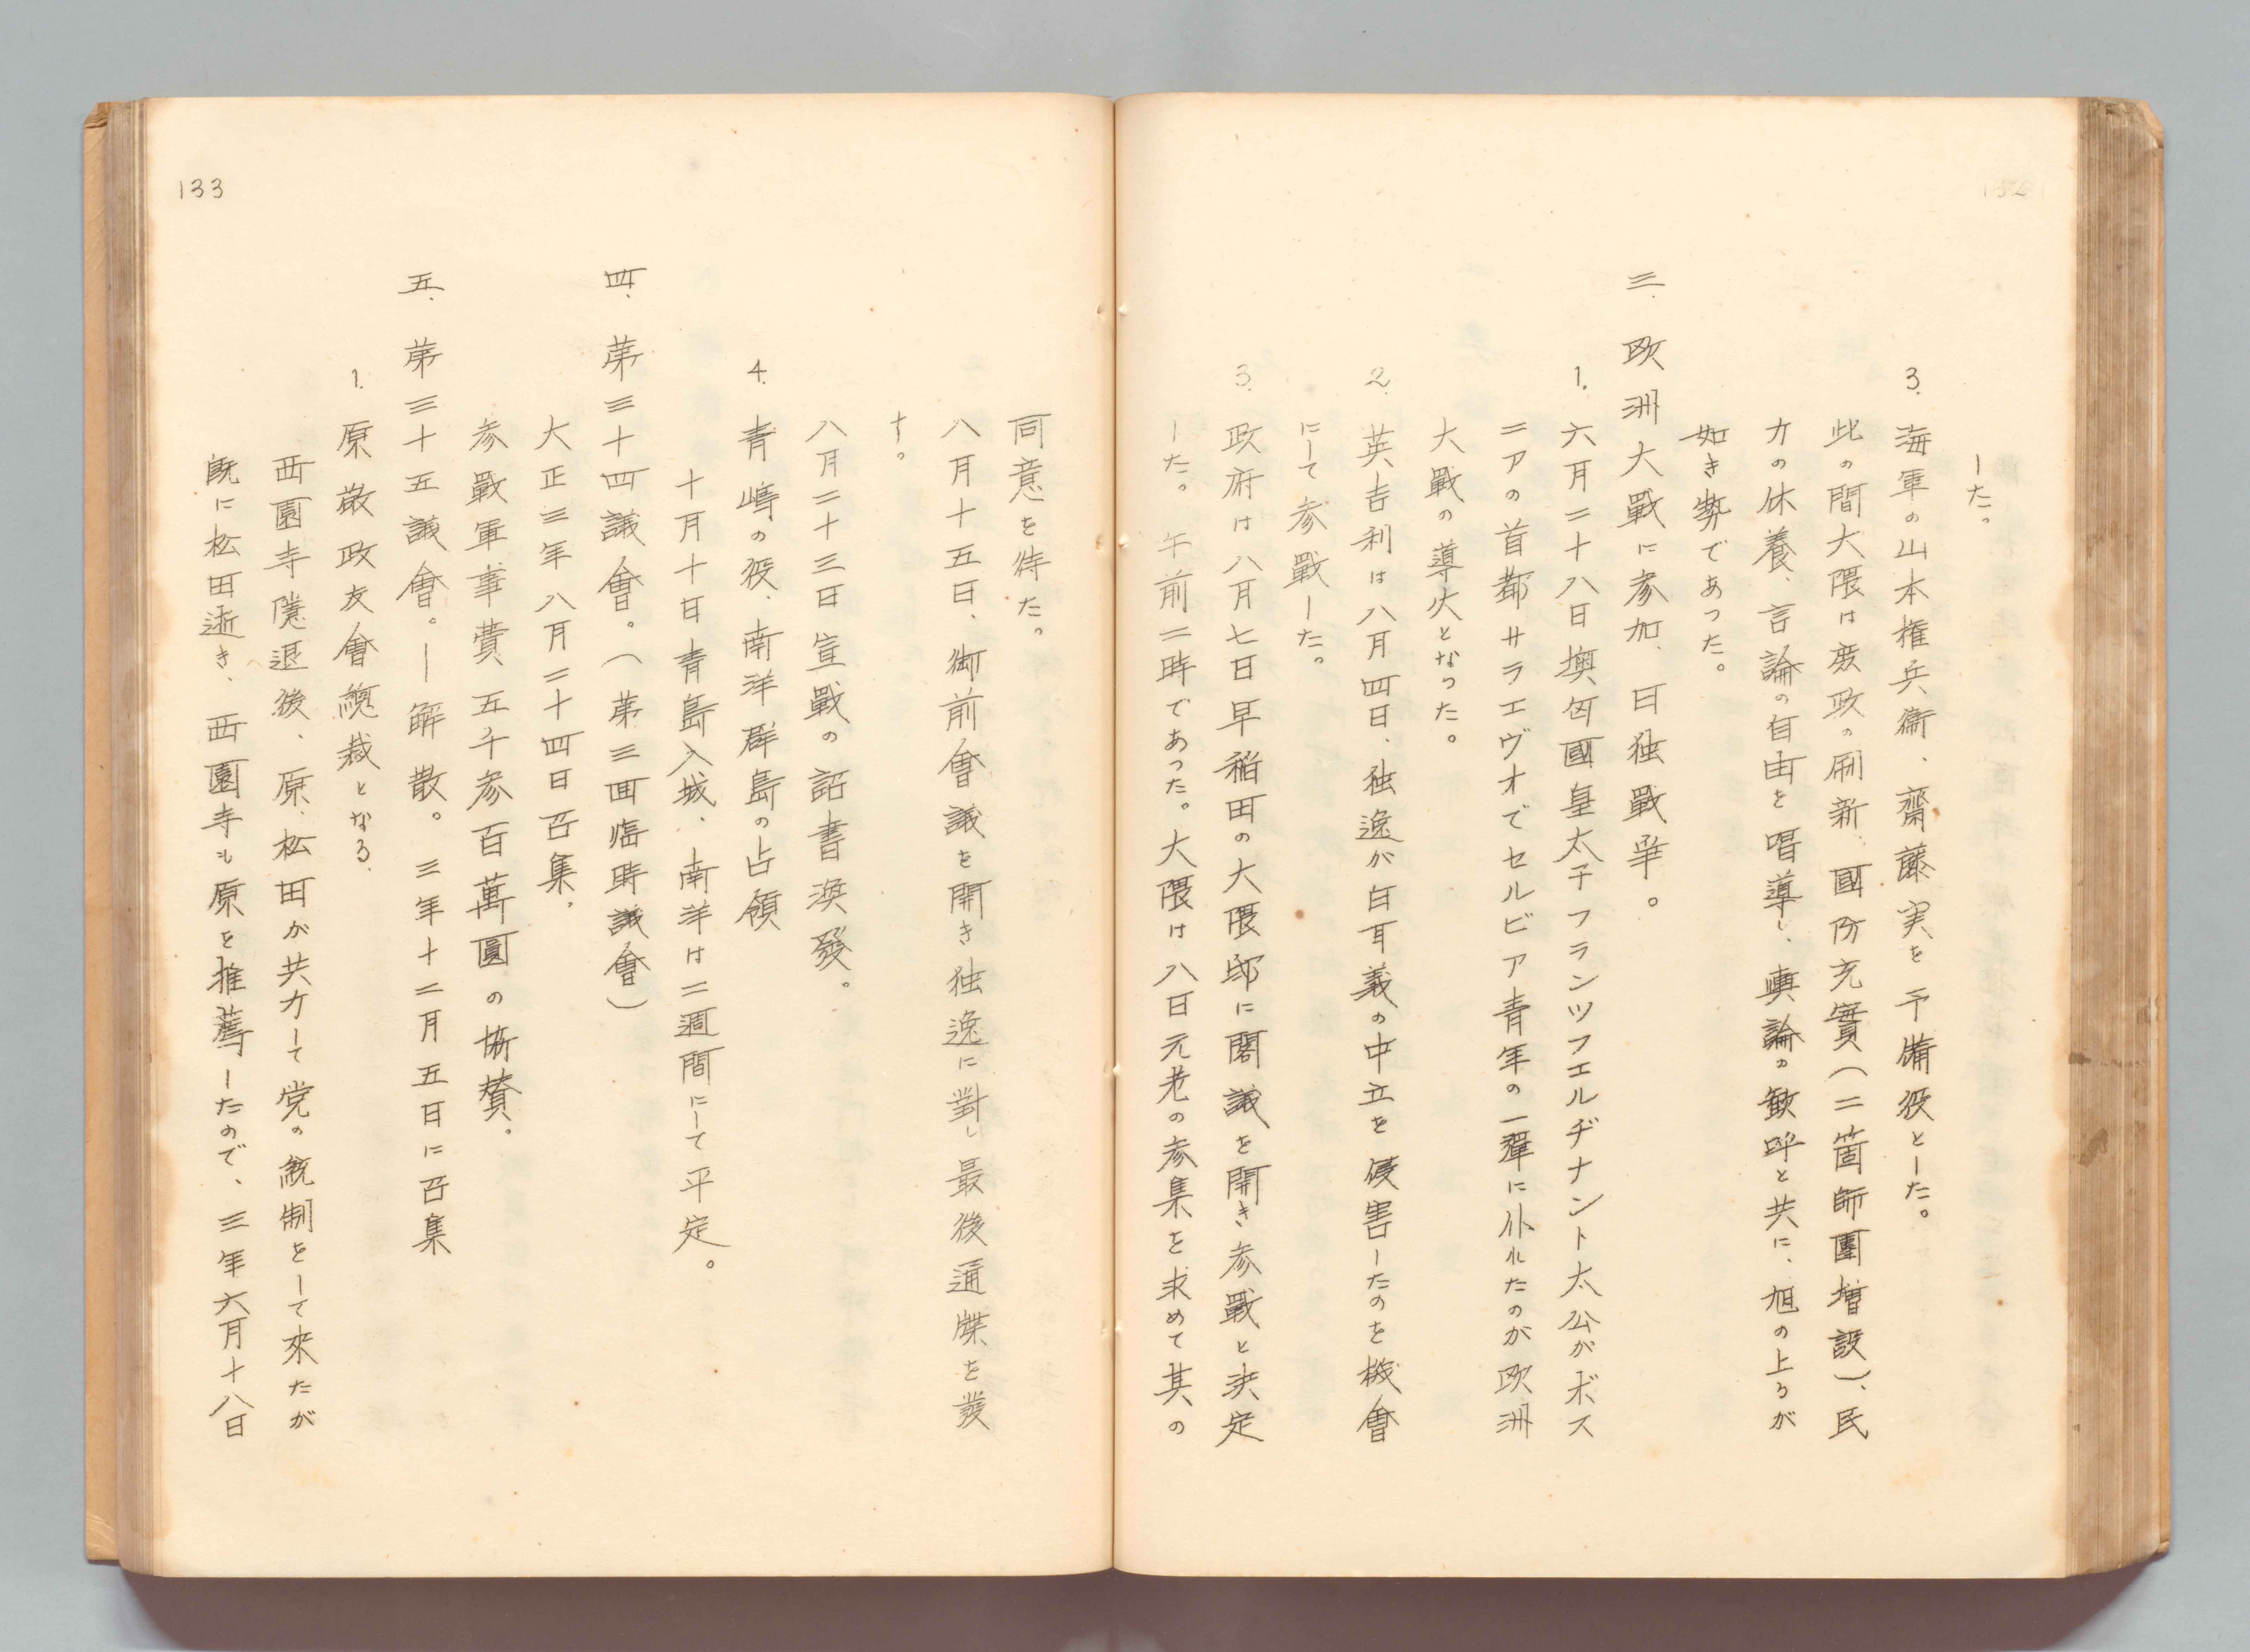 132
した。
3. 海軍の山本権兵衞、齋藤実を予備役とした。
此の間大隈は廃政の刷新、國防充實(二箇師團増設)、民
力の休養、言論の自由を唱導し、輿論の歓呼と共に、旭の上るが
如き勢であった。
三. 欧洲大戰に参加、日独戰爭。
1. 六月二十八日墺匈國皇太子フランツフエルヂナント太公がボス
ニアの首都サラエヴオでセルビア青年の一彈に仆れたのが欧洲
大戰の導火となった。
2. 英吉利は八月四日、独逸が白耳義の中立を侵害したのを機會
にして参戰した。
3. 政府は八月七日早稲田の大隈邸に閣議を開き参戰と決定
した。午前二時であった。大隈は八日元老の参集を求めて其の
133
同意を待た。
八月十五日、御前會議を開き独逸に對し最後通牒を發
す。
八月二十三日宣戰の詔書渙發。
4. 青嶋の役、南洋群島の占領
十月十日青島入城、南洋は二週間にして平定。
四. 第三十四議會。(第三回臨時議會)
大正三年八月二十四日召集。
参戰軍事費五千参百萬圓の協賛。
五. 第三十五議會。—解散。三年十二月五日に召集
1. 原敬政友會總裁となる.
西園寺隱退後、原、松田が共力して党の統制をして來たが
既に松田逝き、西園寺も原を推薦したので、三年六月十八日